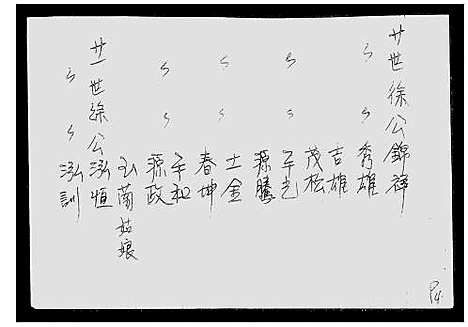 廿世徐公錦祥
〃〃秀雄
吉雄
茂松
〃〃平光
源騰
〃〃士金
春坤
〃〃平和
源政
玉蘭姑娘
廿一世徐公泓恒
〃〃泓訓
P4